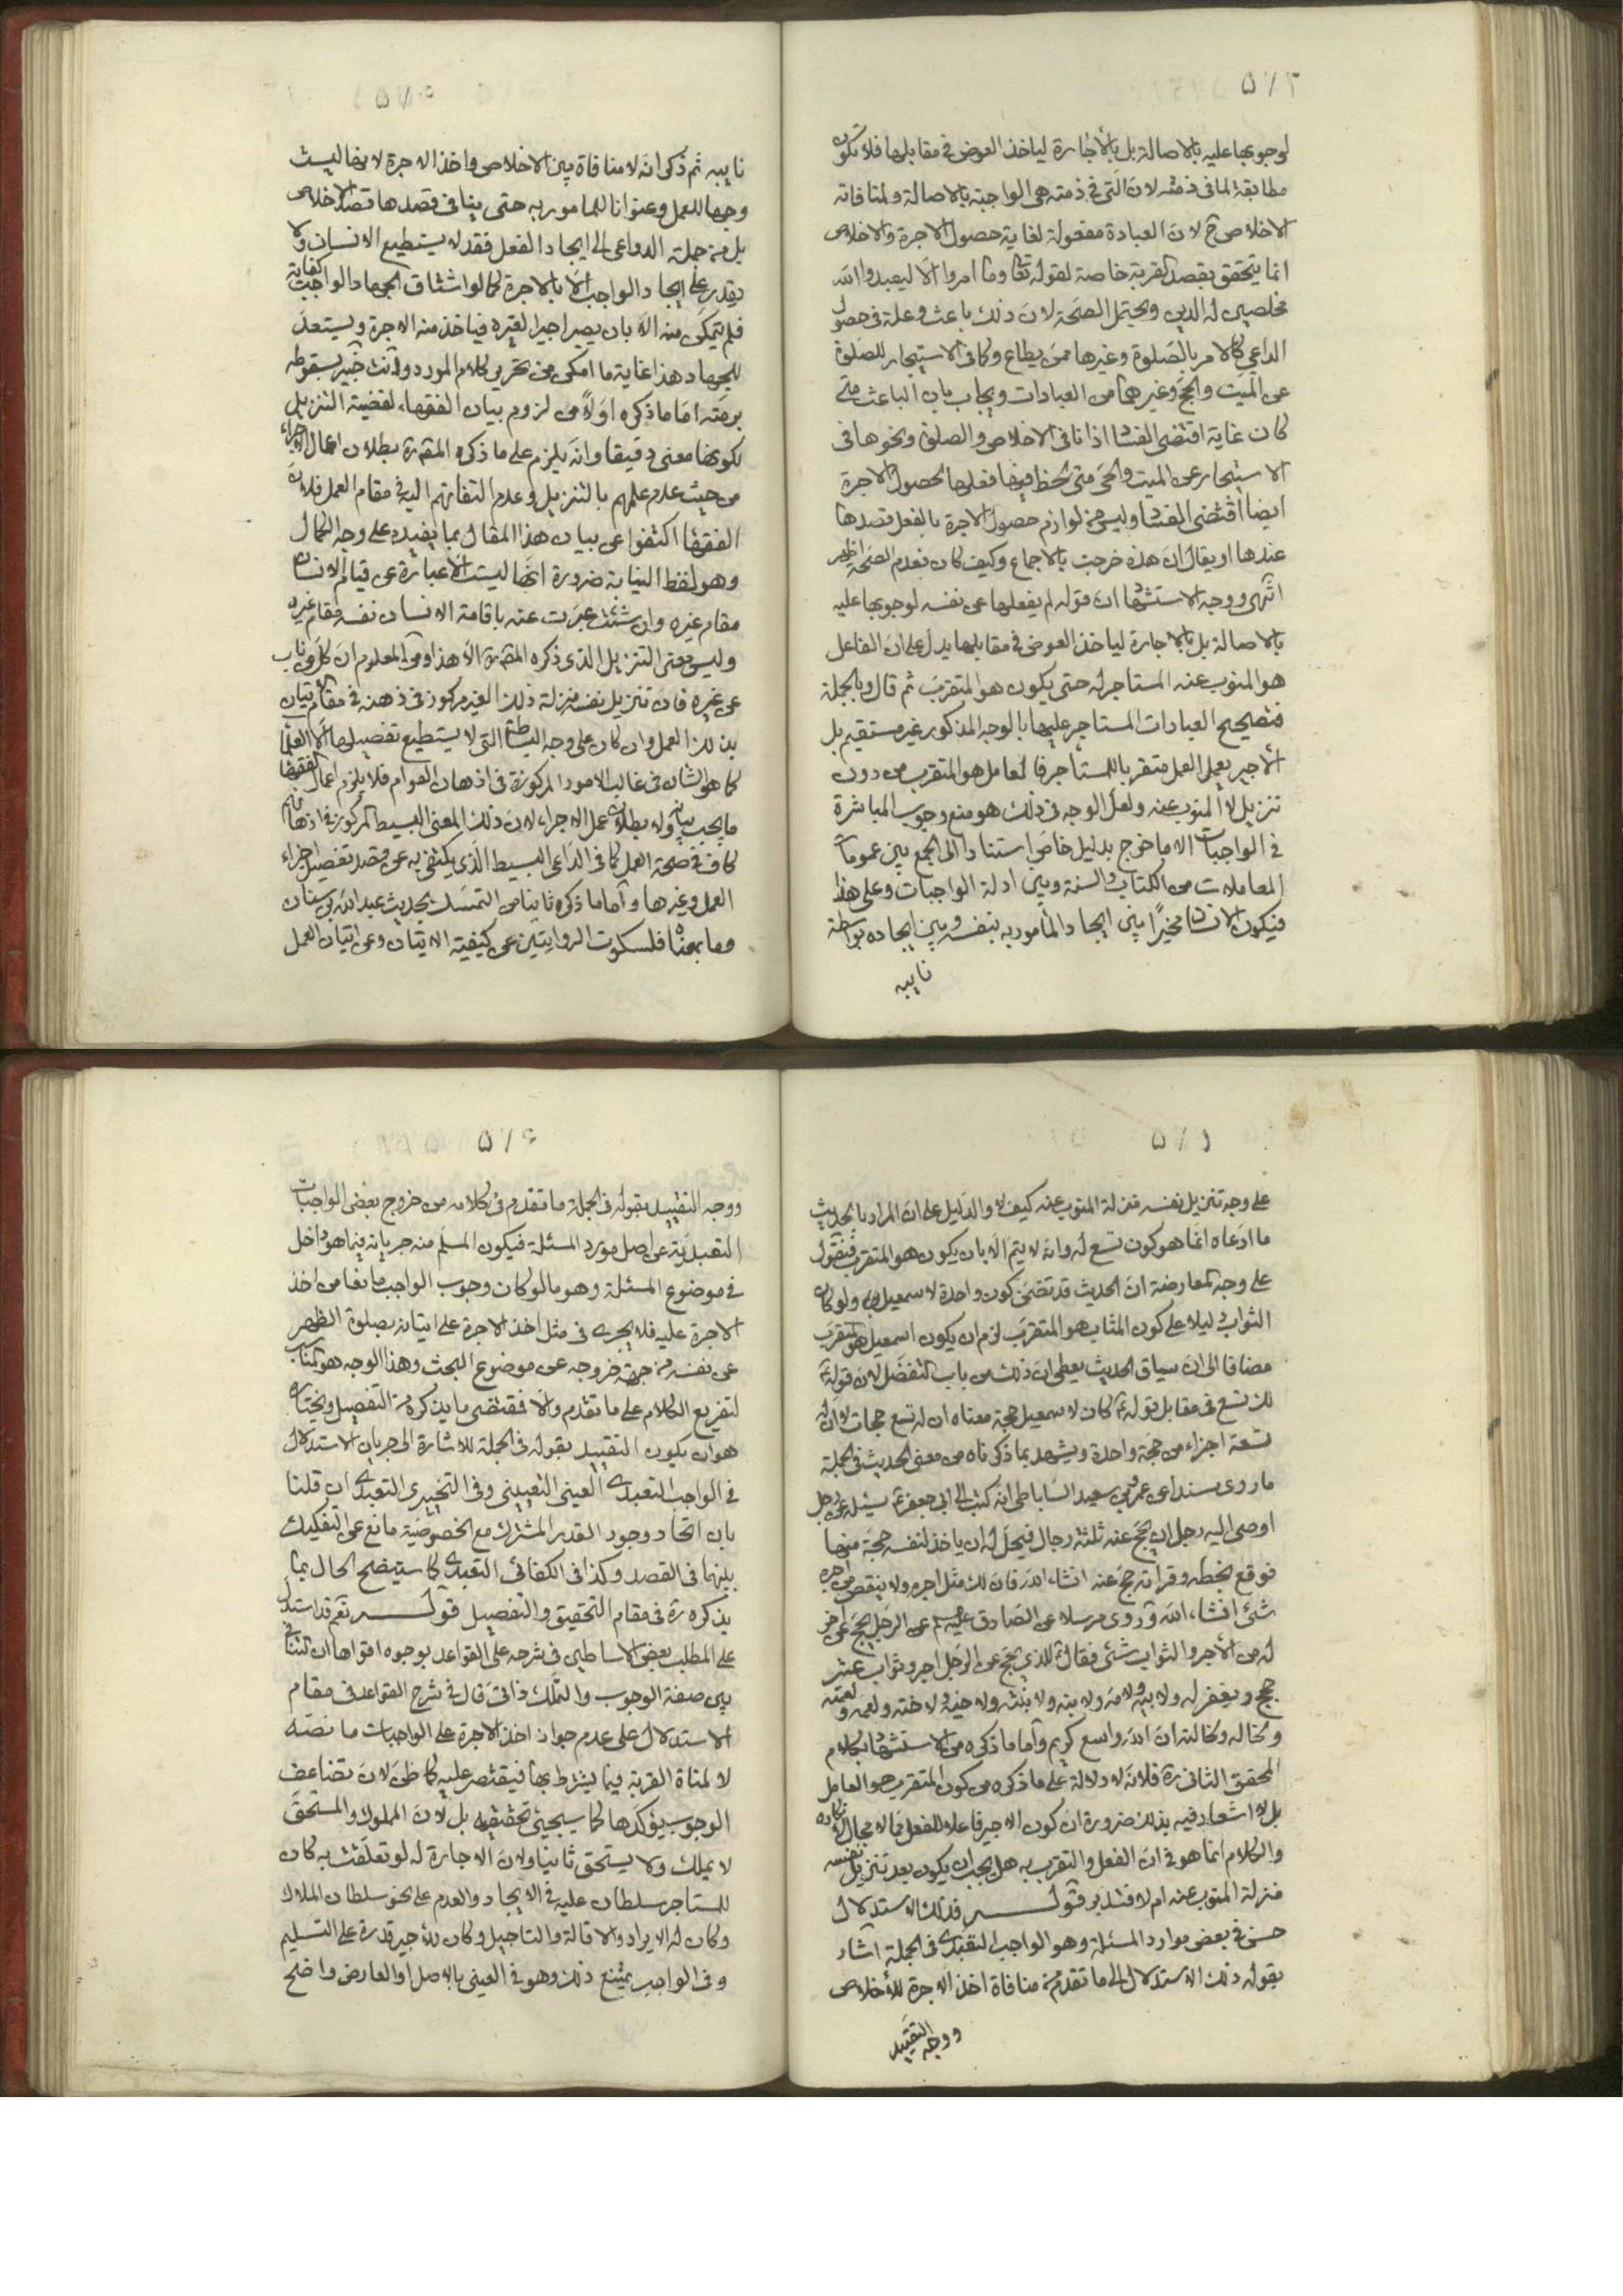 ٥٧٣
لوجوبها عليه بالاصالة بل بالاجارة لياخذ العوض فى مقابلها فلا تكون
مطابقة لما فى ذمته لان التى فى ذمته هى الواجبة بالاصالة ولمنافاته
الاخلاص ح لان العبادة مفعولة لغاية حصول الاجرة والاخلاص
انما يتحقق بقصد القربة خاصة لقوله تعا وما امروا الا ليعبدوا الله
مخلصين له الدين ويحتمل الصحة لان ذلك باعث وعلة فى حصول
الداعى كالامر بالصلوة وغيرها ممن يطاع وكما فى الاستيجار للصلوة
عن الميت والحج وغيرهما من العبادات ويجاب بان الباعث متى
كان غاية اقتضى الفساد اذا نافى الاخلاص والصلوة ونحوها فى
الاستيجار عن الميت والحى متى لحظ فيها فعلها لحصول الاجرة
ايضا اقتضى الفساد وليس من لوازم حصول الاجرة بالفعل قصدها
عندها او يقال ان هذه خرجت بالاجماع وكيف كان فعدم الصحة اظهر
انتهى ووجه الاستشهاد ان قوله لم يفعلها عن نفسه لوجوبها عليه
بالاصالة بل بالاجارة لياخذ العوض فى مقابلها يدل على ان الفاعل
هو المنوب عنه المستاجر له حتى يكون هو المتقرب ثم قال وبالجملة
فتصحيح العبادات المستاجر عليها بالوجه المذكور غير مستقيم بل
الأجير يعمل العمل متقربا للمستاجر فالعامل هو المتقرب من دون
تنزيل لا المنوب عنه ولعل الوجه فى ذلك هو منع وجوب المباشرة
فى الواجبات الا ما خرج بدليل خاص استنادا الى الجمع بين عمومات
المعاملات من الكتاب والسنة وبين ادلة الواجبات وعلى هذا
فيكون الانسان مخيرًا بين ايجاد المأمور به بنفسه وبين ايجاده بواسطة
نايبه
٥٧٤
نايبه ثم ذكر انه لا منافاة بين الاخلاص واخذ الاجرة لانها ليست
وجها للعمل وعنوانا للمامور به حتى ينافى قصدها قصد الاخلاص
بل من جملة الدواعى الى ايجاد الفعل فقد لا يستطيع الانسان ولا
يقدر على ايجاد الواجب الا بالاجرة كما لو اشتاق الجهاد الواجب كفاية
فلم يتمكن منه الا بان يصير اجيرا لغيره فياخذ منه الاجرة ويستعد
للجهاد هذا غاية ما امكن من تحرير كلام المورد وانت خبير بسقوطه
برمته اما ما ذكره اولاً من لزوم بيان الفقهاء لقضية التنزيل
لكونها معنى دقيقا وانه يلزم على ما ذكره المقرره بطلان اعمال الاجراء
من حيث عدم علمهم بالتنزيل وعدم التفاتهم اليه فى مقام العمل فلان
الفقها اكتفوا عن بيان هذا المقال بما يفيده على وجه الكمال
وهو لفظ النيابة ضرورة انها ليست الا عبارة عن قيام الانسان
مقام غيره وان شئت عبرت عنه باقامة الانسان نفسه مقام غيره
وليس معنى التنزيل الذى ذكره المقرره الا هذا ومن المعلوم ان كل من ناب
عن غيره فان تنزيل نفسه منزلة ذلك الغير مركوز فى ذهنه فى مقام الاتيان
بذلك العمل وان كان على وجه البساطة التى لا يستطيع تفصيلها الا العلماء
كما هو الشان فى غالب الامور المركوزة فى اذهان العوام فلا يلزم اهمال الفقها
ما يجب بيانه ولا بطلان عمل الاجراء لان ذلك المعنى البسيط المركوز فى اذهانهم
كاف فى صحة العمل كما فى الداعى البسيط الذى يكتفى به عن قصد تفصيل اجزاء
العمل وغيرها واما ما ذكره ثانيا من التمسك بحديث عبد الله بن سنان
وما بمعناه فلسكوت الروايتين عن كيفية الاتيان وعن اتيان العمل
٥٧٥
على وجه تنزيل نفسه منزلة المنوب عنه كيف لا والدليل على ان المراد بالحديث
ما ادعاه انما هو كون تسع له وانه لا يتم الا بان يكون هو المتقرب فنقول
على وجه المعارضة ان الحديث قد تضمن كون واحدة لاسمعيل ولو كان
الثواب دليلا على كون المثاب هو المتقرب لزم ان يكون اسمعيل هو المتقرب
مضافا الى ان سياق الحديث يعطى ان ذلك من باب التفضل لان قوله ع
لك تسع فى مقابل قوله ع كان لاسمعيل حجة معناه ان له تسع حجات لا ان له
تسعة اجزاء من حجة واحدة ويشهد بما ذكرناه من معنى الحديث فى الجملة
ما روى مسندا عن عمرو بن سعيد الساباطى انه كتب الى ابى جعفر ع يسئله عن رجل
اوصى اليه رجل ان يحج عنه ثلثة رجال فيحل له ان ياخذ لنفسه حجة منها
فوقع بخطه وقراته حج عنه انشاء الله فان لك مثل اجره ولا ينقص من اجره
شئ انشاء الله وروى مرسلا عن الصادق عليه السلم عن الرجل يحج عن اخر
له من الأجر والثواب شئ فقال ع للذى يحج عن الرجل اجر وثواب عشر
حجج ويغفر له ولابيه ولامه ولابنه ولابنته ولاخيه ولاخته ولعمه ولعمته
ولخاله ولخالته ان الله واسع كريم واما ما ذكره من الاستشهاد بكلام
المحقق الثانى ره فلانه لا دلالة على ما ذكره من كون المتقرب هو العامل
بل لا اشعار فيه بذلك ضرورة ان كون الاجير فاعلا للفعل مما لا مجال لانكاره
والكلام انما هو فى ان الفعل والتقرب به هل يجب ان يكون بعد تنزيل نفسه
منزلة المنوب عنه ام لا فتدبر قوله فذلك الاستدلال
حسن فى بعض موارد المسئلة وهو الواجب التعبدى فى الجملة اشار
بقوله ذلك الاستدلال الى ما تقدم من منافاة اخذ الاجرة للأخلاص
ووجه التقييد
٥٧٦
ووجه التقييد بقوله فى الجملة ما تقدم فى كلامه من خروج بعض الواجبات
التعبدية عن اصل مورد المسئلة فيكون المسلم منه جريانه فيما هو داخل
فى موضوع المسئلة وهو ما لو كان وجوب الواجب مانعا من اخذ
الاجرة عليه فلا يجرى فى مثل اخذ الاجرة على اتيانه بصلوة الظهر
عن نفسه من جهة خروجه عن موضوع البحث وهذا الوجه هو المناسب
لتفريع الكلام على ما تقدم والا فمقتضى ما يذكره من التفصيل ويختاره
هو ان يكون التقييد بقوله فى الجملة للاشارة الى جريان الاستدلال
فى الواجب التعبدى العينى التعيينى وفى التخييرى التعبدى ان قلنا
بان اتحاد وجود القدر المشترك مع الخصوصية مانع عن التفكيك
بينهما فى القصد وكذا فى الكفائى التعبدى كما سيتضح الحال بما
يذكره ره فى مقام التحقيق والتفصيل قوله نعم قد استدل
على المطلب بعض الاساطين فى شرحه على القواعد بوجوه اقواها ان التنافى
بين صفة الوجوب والتملك ذاتى قال فى شرح القواعد فى مقام
الاستدلال على عدم جواز اخذ الاجرة على الواجبات ما نصه
لا لمنافاة القربة فيما يشترط بها فيقتصر عليه كما ظن لان تضاعف
الوجوب يؤكدها كما سيجيئ تحقيقه بل لان المملوك والمستحق
لا يملك ولا يستحق ثانيا ولان الاجارة له لو تعلقت به كان
للمستاجر سلطان عليه فى الايجاد والعدم على نحو سلطان الملاك
وكان له الايراد والاقالة والتاجيل وكان للأجير قدرة على التسليم
وفى الواجب يمتنع ذلك وهو فى العينى بالاصل او العارض واضح